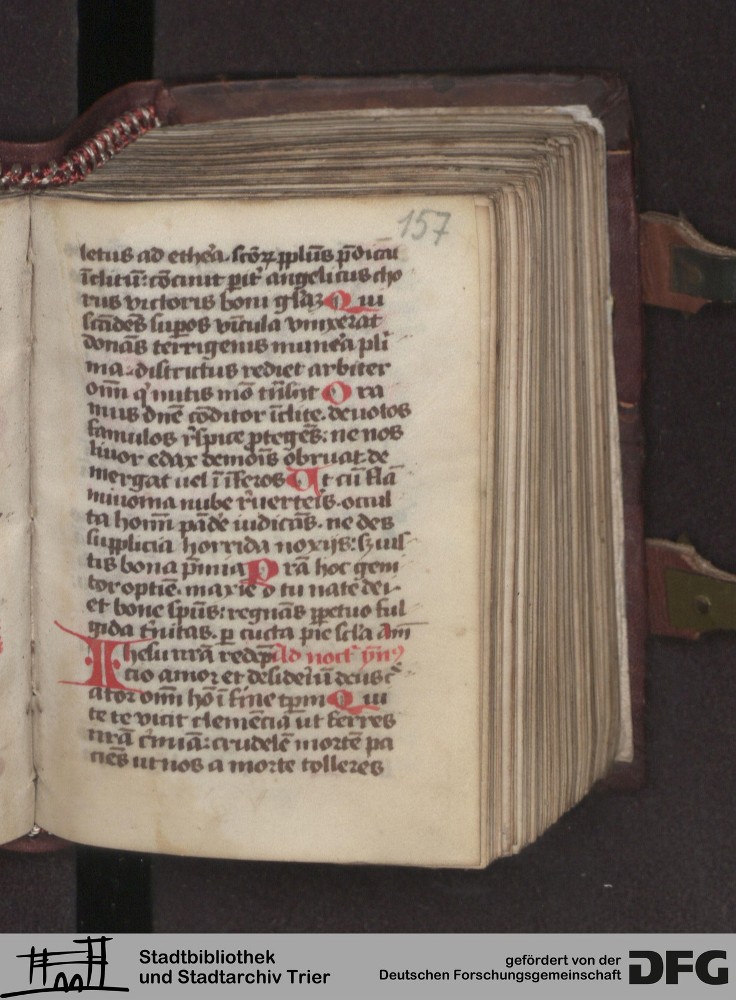 157
letus ad ethea. scōꝝ pplūs p̄dicū
īclitū: cōcinit pit' angelicus cho
rus victoris boni gl'az Qui
scādēs supos vīcula vinxerat
donās terrigenis munera pli
ma. districtus rediet arbiter
om̄ q' mitis mō Ora
mus dn̄e cōditor īclite. deuotos
famulos r̄spice ptegēs: ne nos
liuor edax demōis obruat de
mergat uel ī īferos Ut cū flā
miuoma nube r̄uerteis. ocul
ta hoīm pāde iudicās. ne des
supplicia horrida noxijs: sz ius
tis bona p̄mia Prā hoc geni
tor optīe. marie o tu nate dei
et bone sp̄us: regnās ppetuo ful
gida t'nitas. p cūcta pie scl'a am̄
Ihesu nrā redēp Ad noct' ym̄9
cio amor et desideriū deus c
ator om̄ hō ī fine tpm Qui
te te vicit clemēcia ut ferres
nrā c'mia: crudelē mortē pa
ciēs ut nos a morte tolleres
Stadtbibliothek
und Stadtarchiv Trier
gefördert von der
Deutschen Forschungsgemeinschaft
DFG